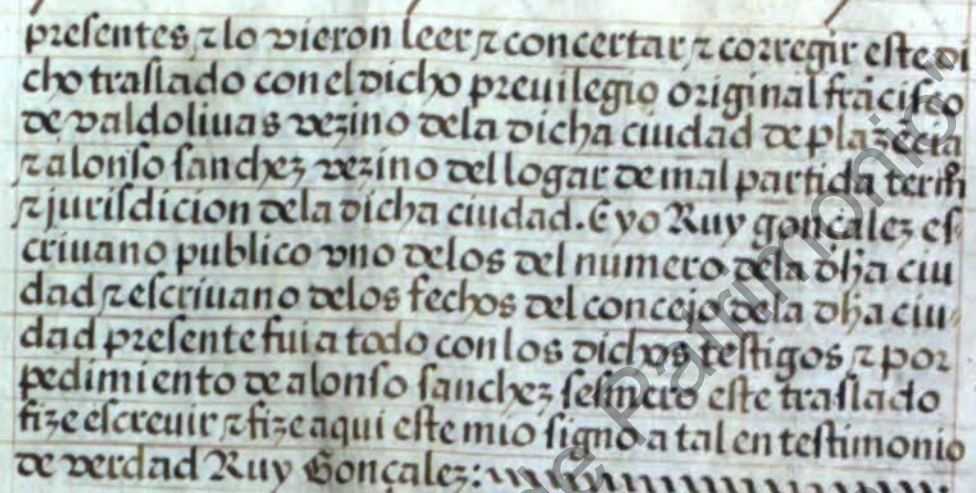 presentes ⁊ lo vieron leer ⁊ concertar ⁊ corregir este di
cho traslado con el dicho preuilegio original frãcisco
de valdoliuas vezino dela dicha ciudad de plazẽcia
⁊ alonso sanchez vezino del logar de mal partida termi
⁊ jurisdicion dela dicha ciudad. E yo Ruy gonçalez es
criuano publico vno delos del numero dela dħa ciu
dad ⁊ escriuano delos fechos del concejo dela dħa ciu-
dad presente fui a todo con los dichos testigos ⁊ por
pedimiento de alonso sanchez sesmero este traslado
fize escreuir ⁊ fize aqui este mio signo a tal en testimonio
de verdad Ruy Gonçalez:
de Patrimonio